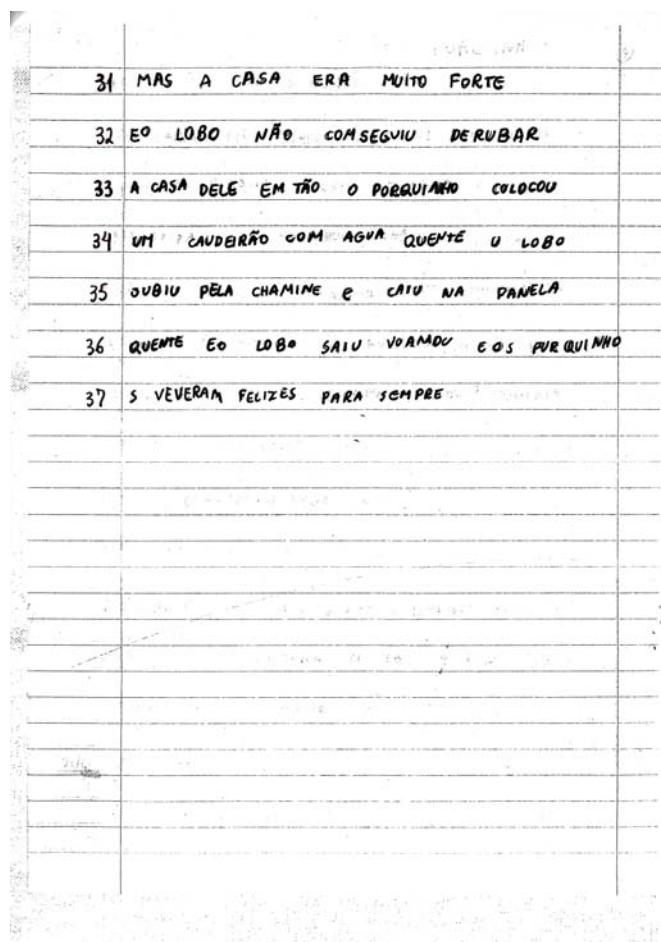 31 MAS A CASA ERA MUITO FORTE
32 EO LOBO NÃO COMSEGUIU DERUBAR
33 A CASA DELE EM TÃO O PORQUINHO COLOCOU
34 UM CAUDEIRÃO COM AGUA QUENTE U LOBO
35 SUBIU PELA CHAMINE e CAIU NA PANELA
36 QUENTE EO LOBO SAIU VOAMDU E OS PURQUINHO
37 S VEVERAM FELIZES PARA SEMPRE